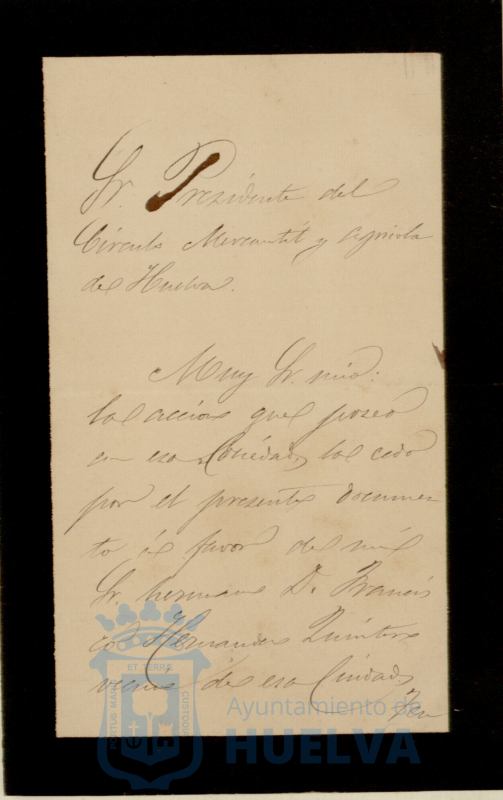 Sr. Presidente del
Círculo Mercantil y Agrícola
de Huelva.
Muy Sr. mio:
la accion que poseo
en esa Sociedad, la cedo
por el presente documen
to á favor de mi
Sr. hermano D. Francis
co Hernandez Quintero
vecino de esa Ciudad,
PORTUS MARIS
ET TERRAE
CUSTODIA
Ayuntamiento de
HUELVA